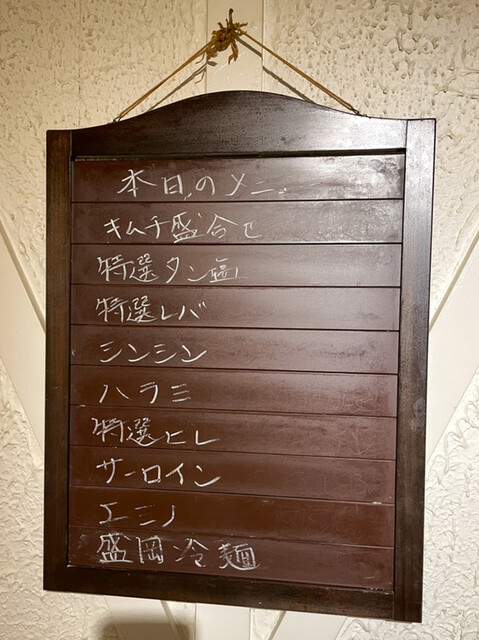 本日のメニ
キムチ盛合せ
特選タン塩
特選レバ
シンシン
ハラミ
特選ヒレ
サーロイン
エニノ
盛岡冷麺